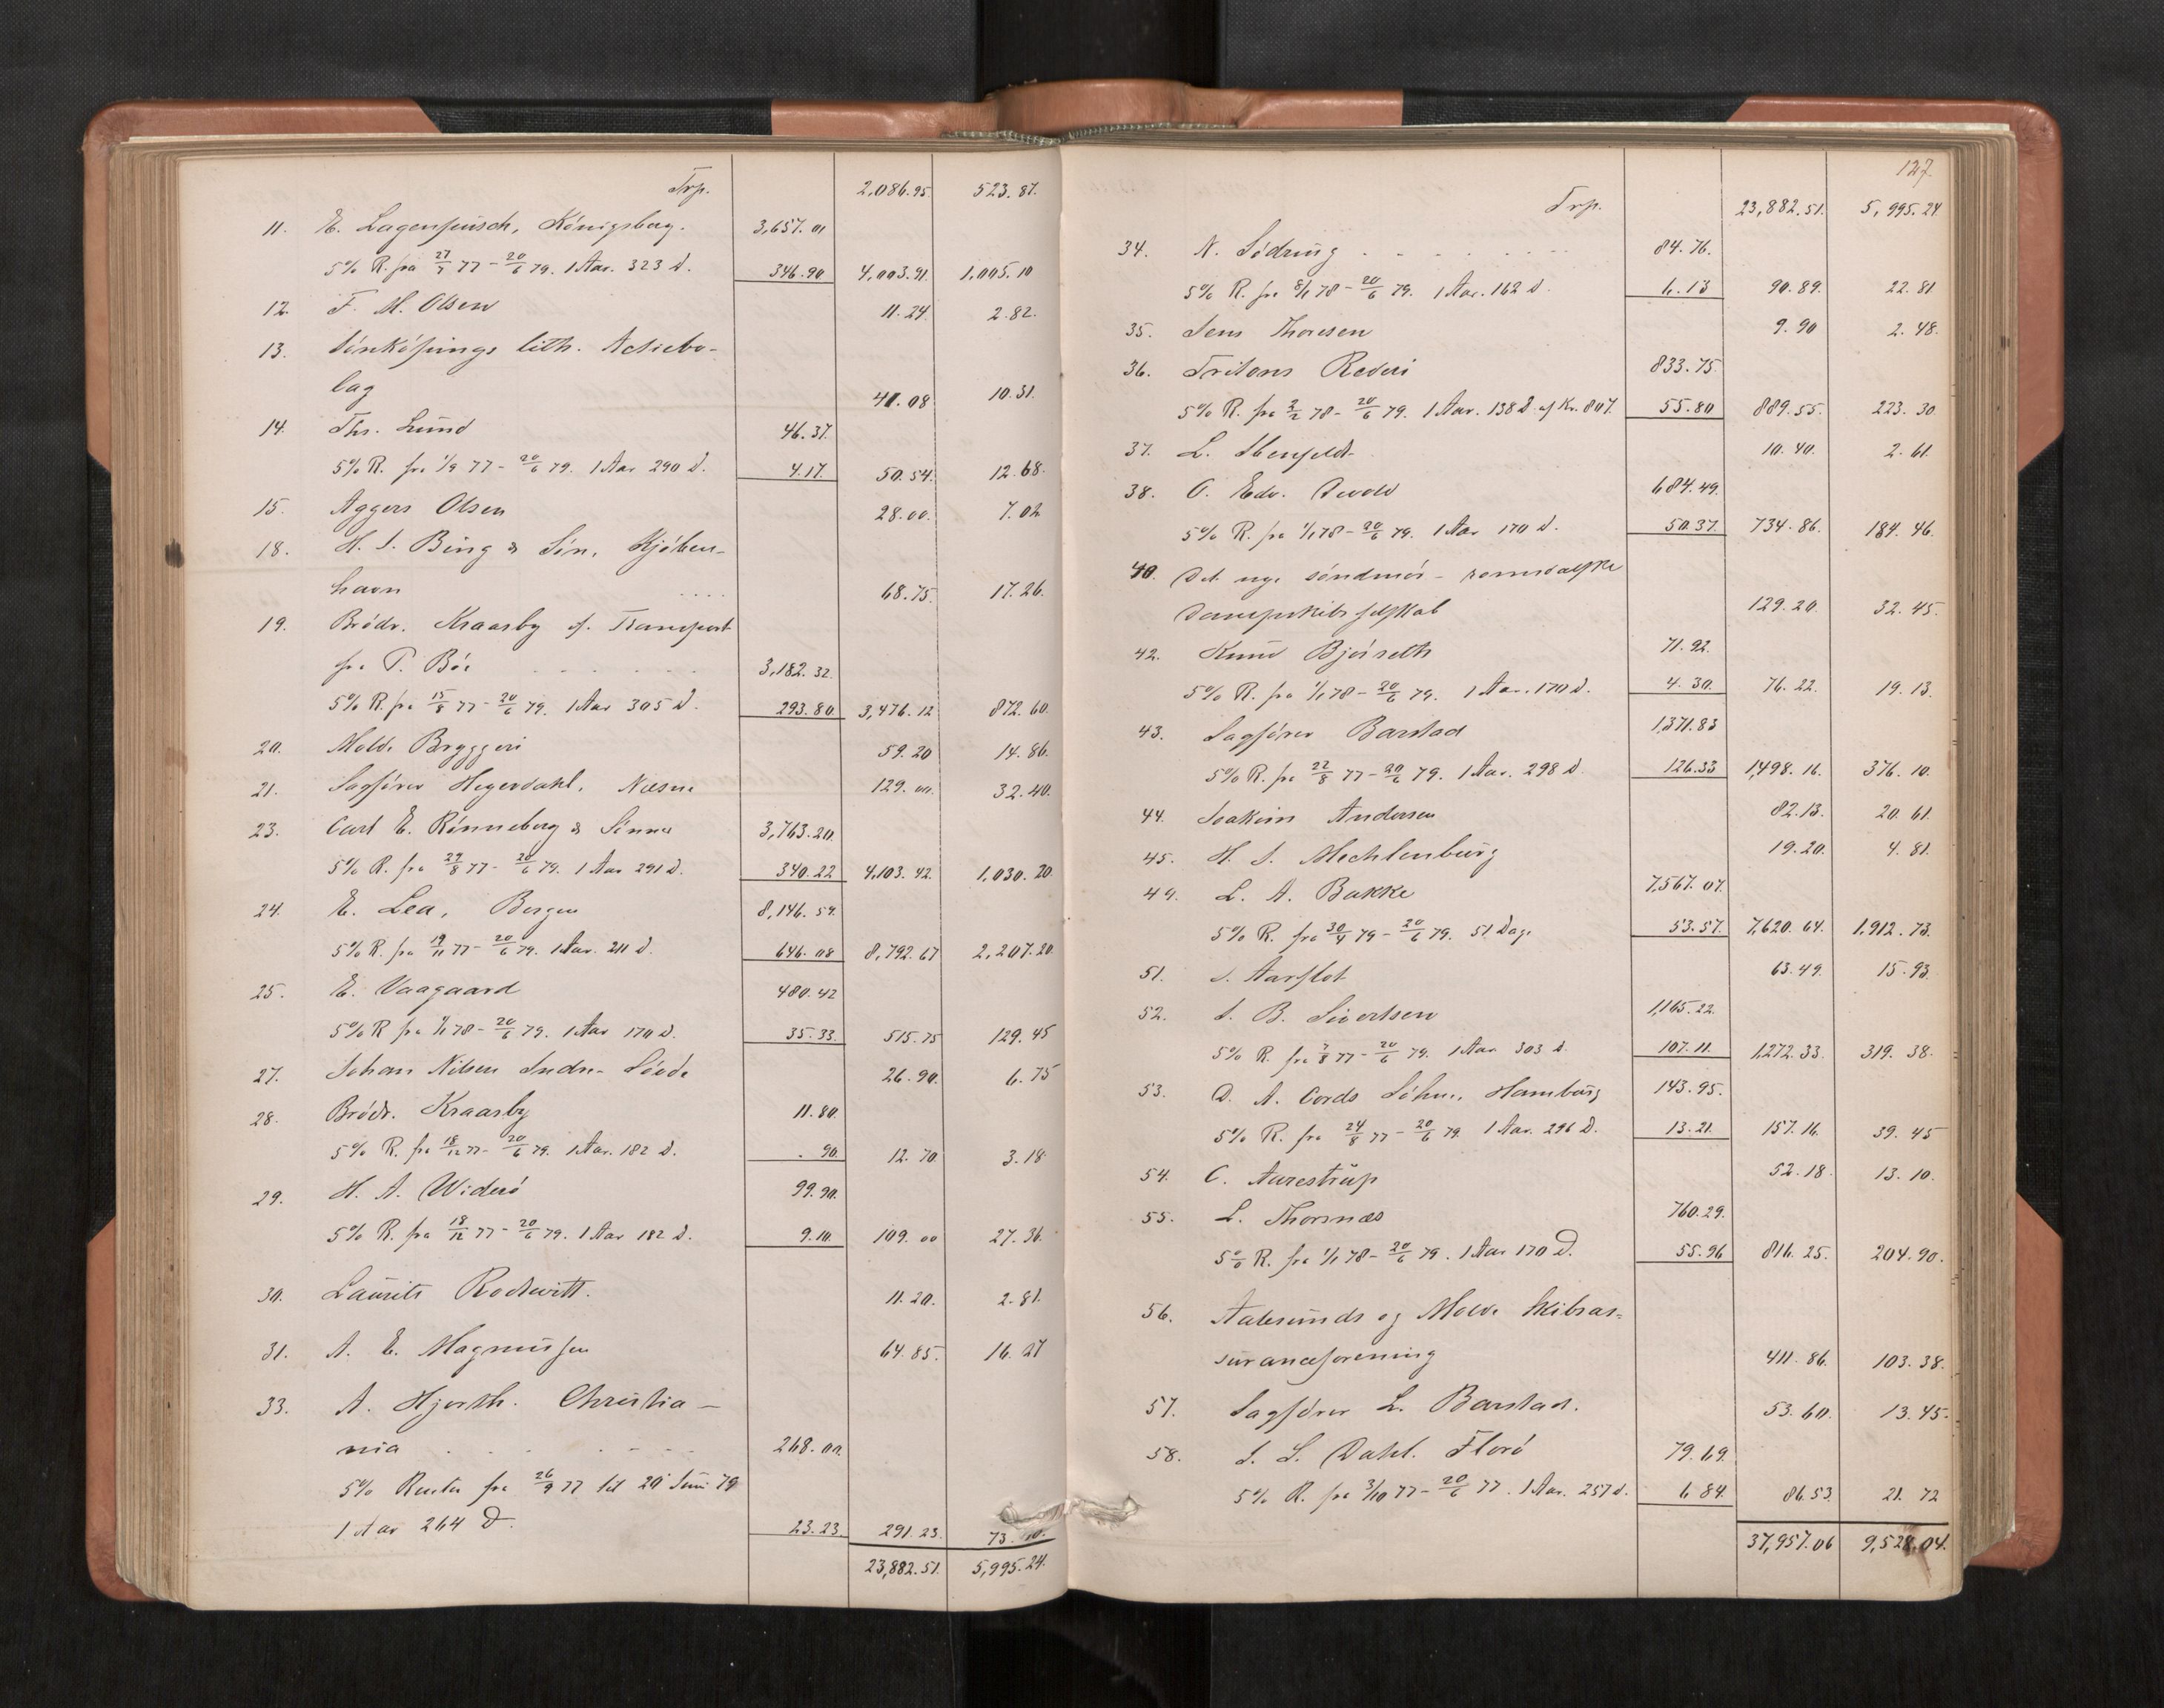 Trp. 2,086.95. 523.87.
11. E. Lagenpusch, Königsberg. 3,657.01
5% R. fra 27/7 77 - 20/6 79. 1 Aar. 323 d. 346.90 4,003.91. 1,005.10
12. F. M. Olsen 11.24. 2.82.
13. Jönköpings lith. Actiebo-
lag 41.08 10.31.
14. Thr. Lund 46.37.
5% R. fra 1/9 77 - 20/6 79. 1 Aar 290 d. 4.17. 50.54. 12.68.
15. Aggers Olsen 28.00. 7.02
18. H. J. Bing & Sön, Kjöben-
havn .... 68.75. 17.26.
19. Brödr. Kraasby if. Transport
fra P. Böe 3,182.32.
5% R. fra 15/8 77 - 20/6 79. 1 Aar 305 d. 293.80 3,476.12 872.60.
20. Molde Bryggeri 59.20 14.86.
21. Sagförer Hegerdahl, Næsne 129.00. 32.40.
23. Carl E. Rönneberg & Sönner 3,763.20.
5% R. fra 29/8 77 - 20/6 79. 1 Aar 291 d. 340.22 4,103.42. 1,030.20.
24. E. Lea, Bergen 8,146.59.
5% R. fra 19/11 77 - 20/6 79. 1 Aar. 211 d. 646.08 8,792.67 2,207.20.
25. E. Vaagaard 480.42
5% R fra 1/1 78 - 20/6 79. 1 Aar 170 d. 35.33. 515.75 129.45
27. Johan Nilsen Indre-Sövde 26.90. 6.75
28. Brödr. Kraasby 11.80.
5% R. fra 18/12 77 - 20/6 79. 1 Aar. 182 d. . 90. 12.70 3.18
29. H. A. Widerö 99.90.
5% R. fra 18/12 77 - 20/6 79. 1 Aar 182 d. 9.10. 109.00 27.36.
30. Laurits Rodtwitt. 11.20. 2.81.
31. A. E. Magnussen 64.85. 16.27
33. A. Hjorth. Christia-
nia 268.00.
5% Renter fra 26/9 77 til 20 Juni 79
1 Aar 264 D. 23.23. 291.23. 73.10.
23,882.51. 5,995.24.
127.
Trp. 23,882.51. 5,995.24
34. N. Södring 84.76.
5% R. fra 8/1 78 - 20/6 79. 1 Aar. 162 d. 6.13 90.89. 22.81
35. Jens Thoresen 9.90 2.48.
36. Tritons Rederi 833.75.
5% R. fra 2/2 78 - 20/6 79. 1 Aar. 138 d. af Kr. 807. 55.80 889.55. 223.30.
37. L. Stenfeldt 10.40. 2.61.
38. O. Edv. Devold 684.49.
5% R. fra 1/1 78 - 20/6 79. 1 Aar 170 d. 50.37. 734.86. 184.46.
40. Det nye söndmör-romsdalske
Dampskibsselskab 129.20. 32.45.
42. Knud Bjöirseth 71.92.
5% R. fra 1/1 78 - 20/6 79. 1 Aar. 170 d. 4.30. 76.22. 19.13.
43. Sagförer Barstad 1,371.83
5% R. fra 22/8 77 - 20/6 79. 1 Aar. 298 d. 126.33 1,498.16. 376.10.
44. Joakim Andersen 82.13. 20.61.
45. H. J. Mechlenburg 19.20. 4.81.
49. L. A. Bakke 7,567.07.
5% R. fra 30/4 79 - 20/6 79. 51 Dage 53.57. 7,620.64. 1,912.73.
51. J. Aarflot 63.49. 15.93.
52. J. B. Sivertsen 1,165.22.
5% R. fra 7/8 77 - 20/6 79. 1 Aar 303 d. 107.11. 1,272.33. 319.38.
53. D. A. Cords Söhne, Hamburg 143.95.
5% R. fra 24/8 77 - 20/6 79. 1 Aar. 296 D. 13.21. 157.16. 39.45
54. C. Aarestrup 52.18 13.10.
55. L. Thorsnæs 760.29.
5% R. fra 1/1 78 - 20/6 79. 1 Aar 170 D. 55.96 816.25. 204.90.
56. Aalesunds og Molde Skibsas-
suranceforening 411.86. 103.38.
57. Sagförer L. Barstad. 53.60. 13.45.
58. J. L. Dahl. Florö 79.69.
5% R. fra 3/10 77 - 20/6 77. 1 Aar. 257 d. 6.84. 86.53. 21.72
37,957.06 9,528.04.